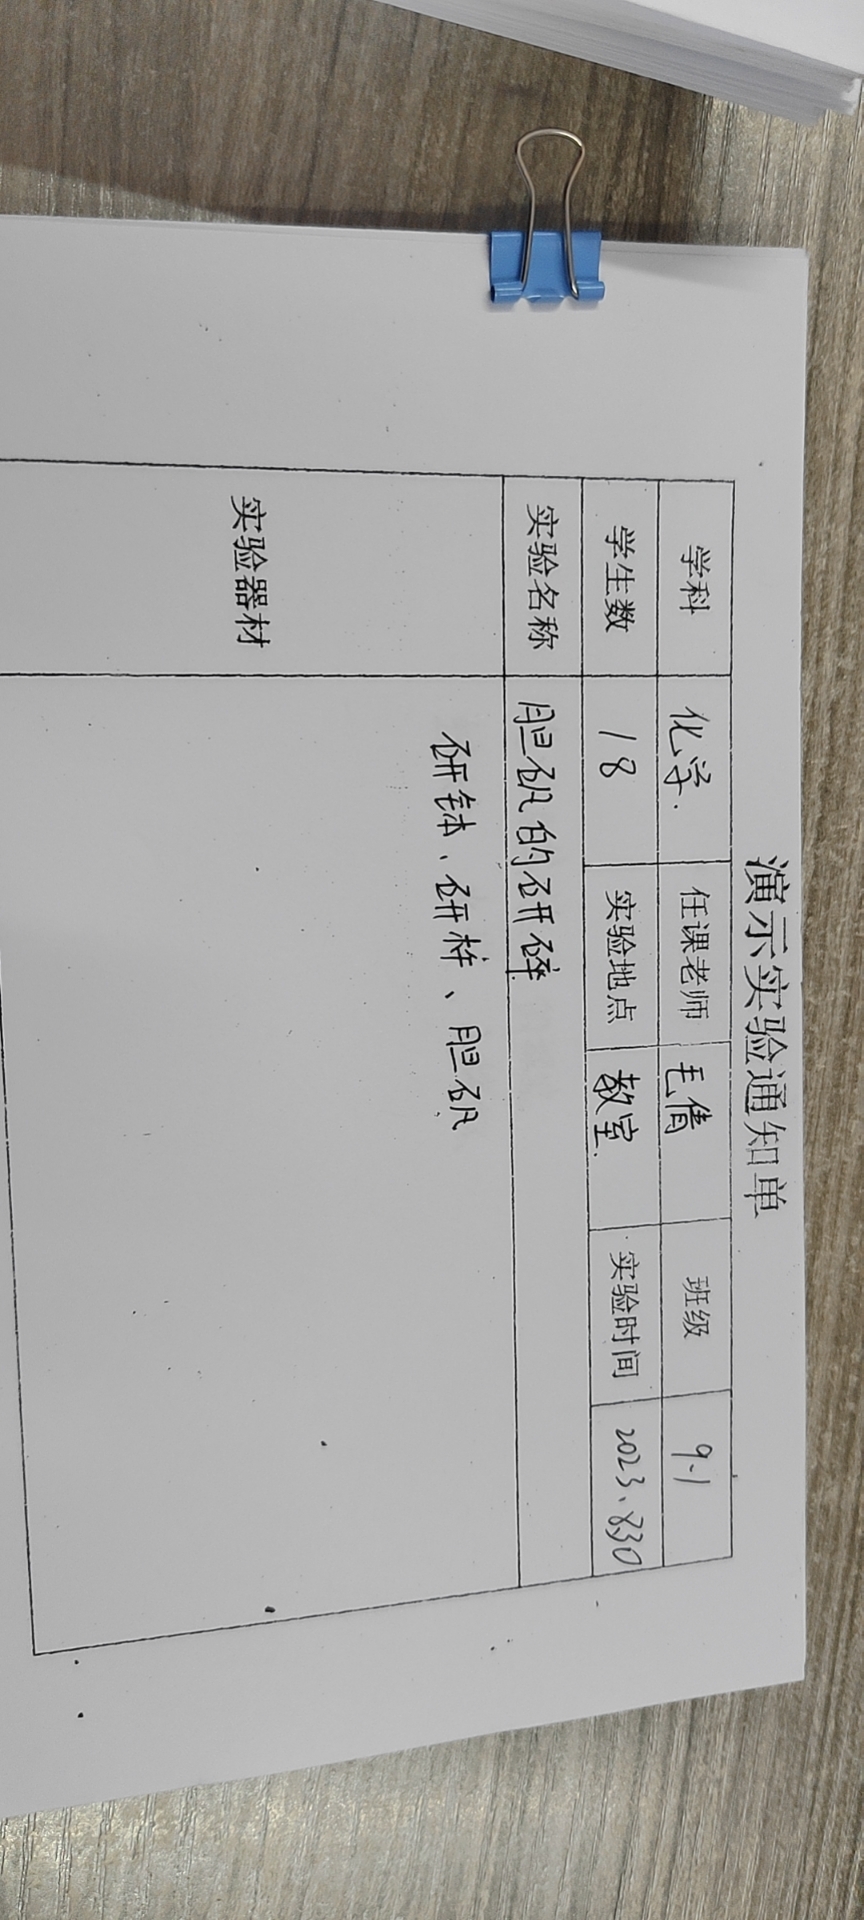 演示实验通知单
学科 化学. 任课老师 毛倩 班级 9.1
学生数 18 实验地点 教室. 实验时间 2023.8.30
实验名称 胆矾的研碎
实验器材 研钵、研杵、胆矾